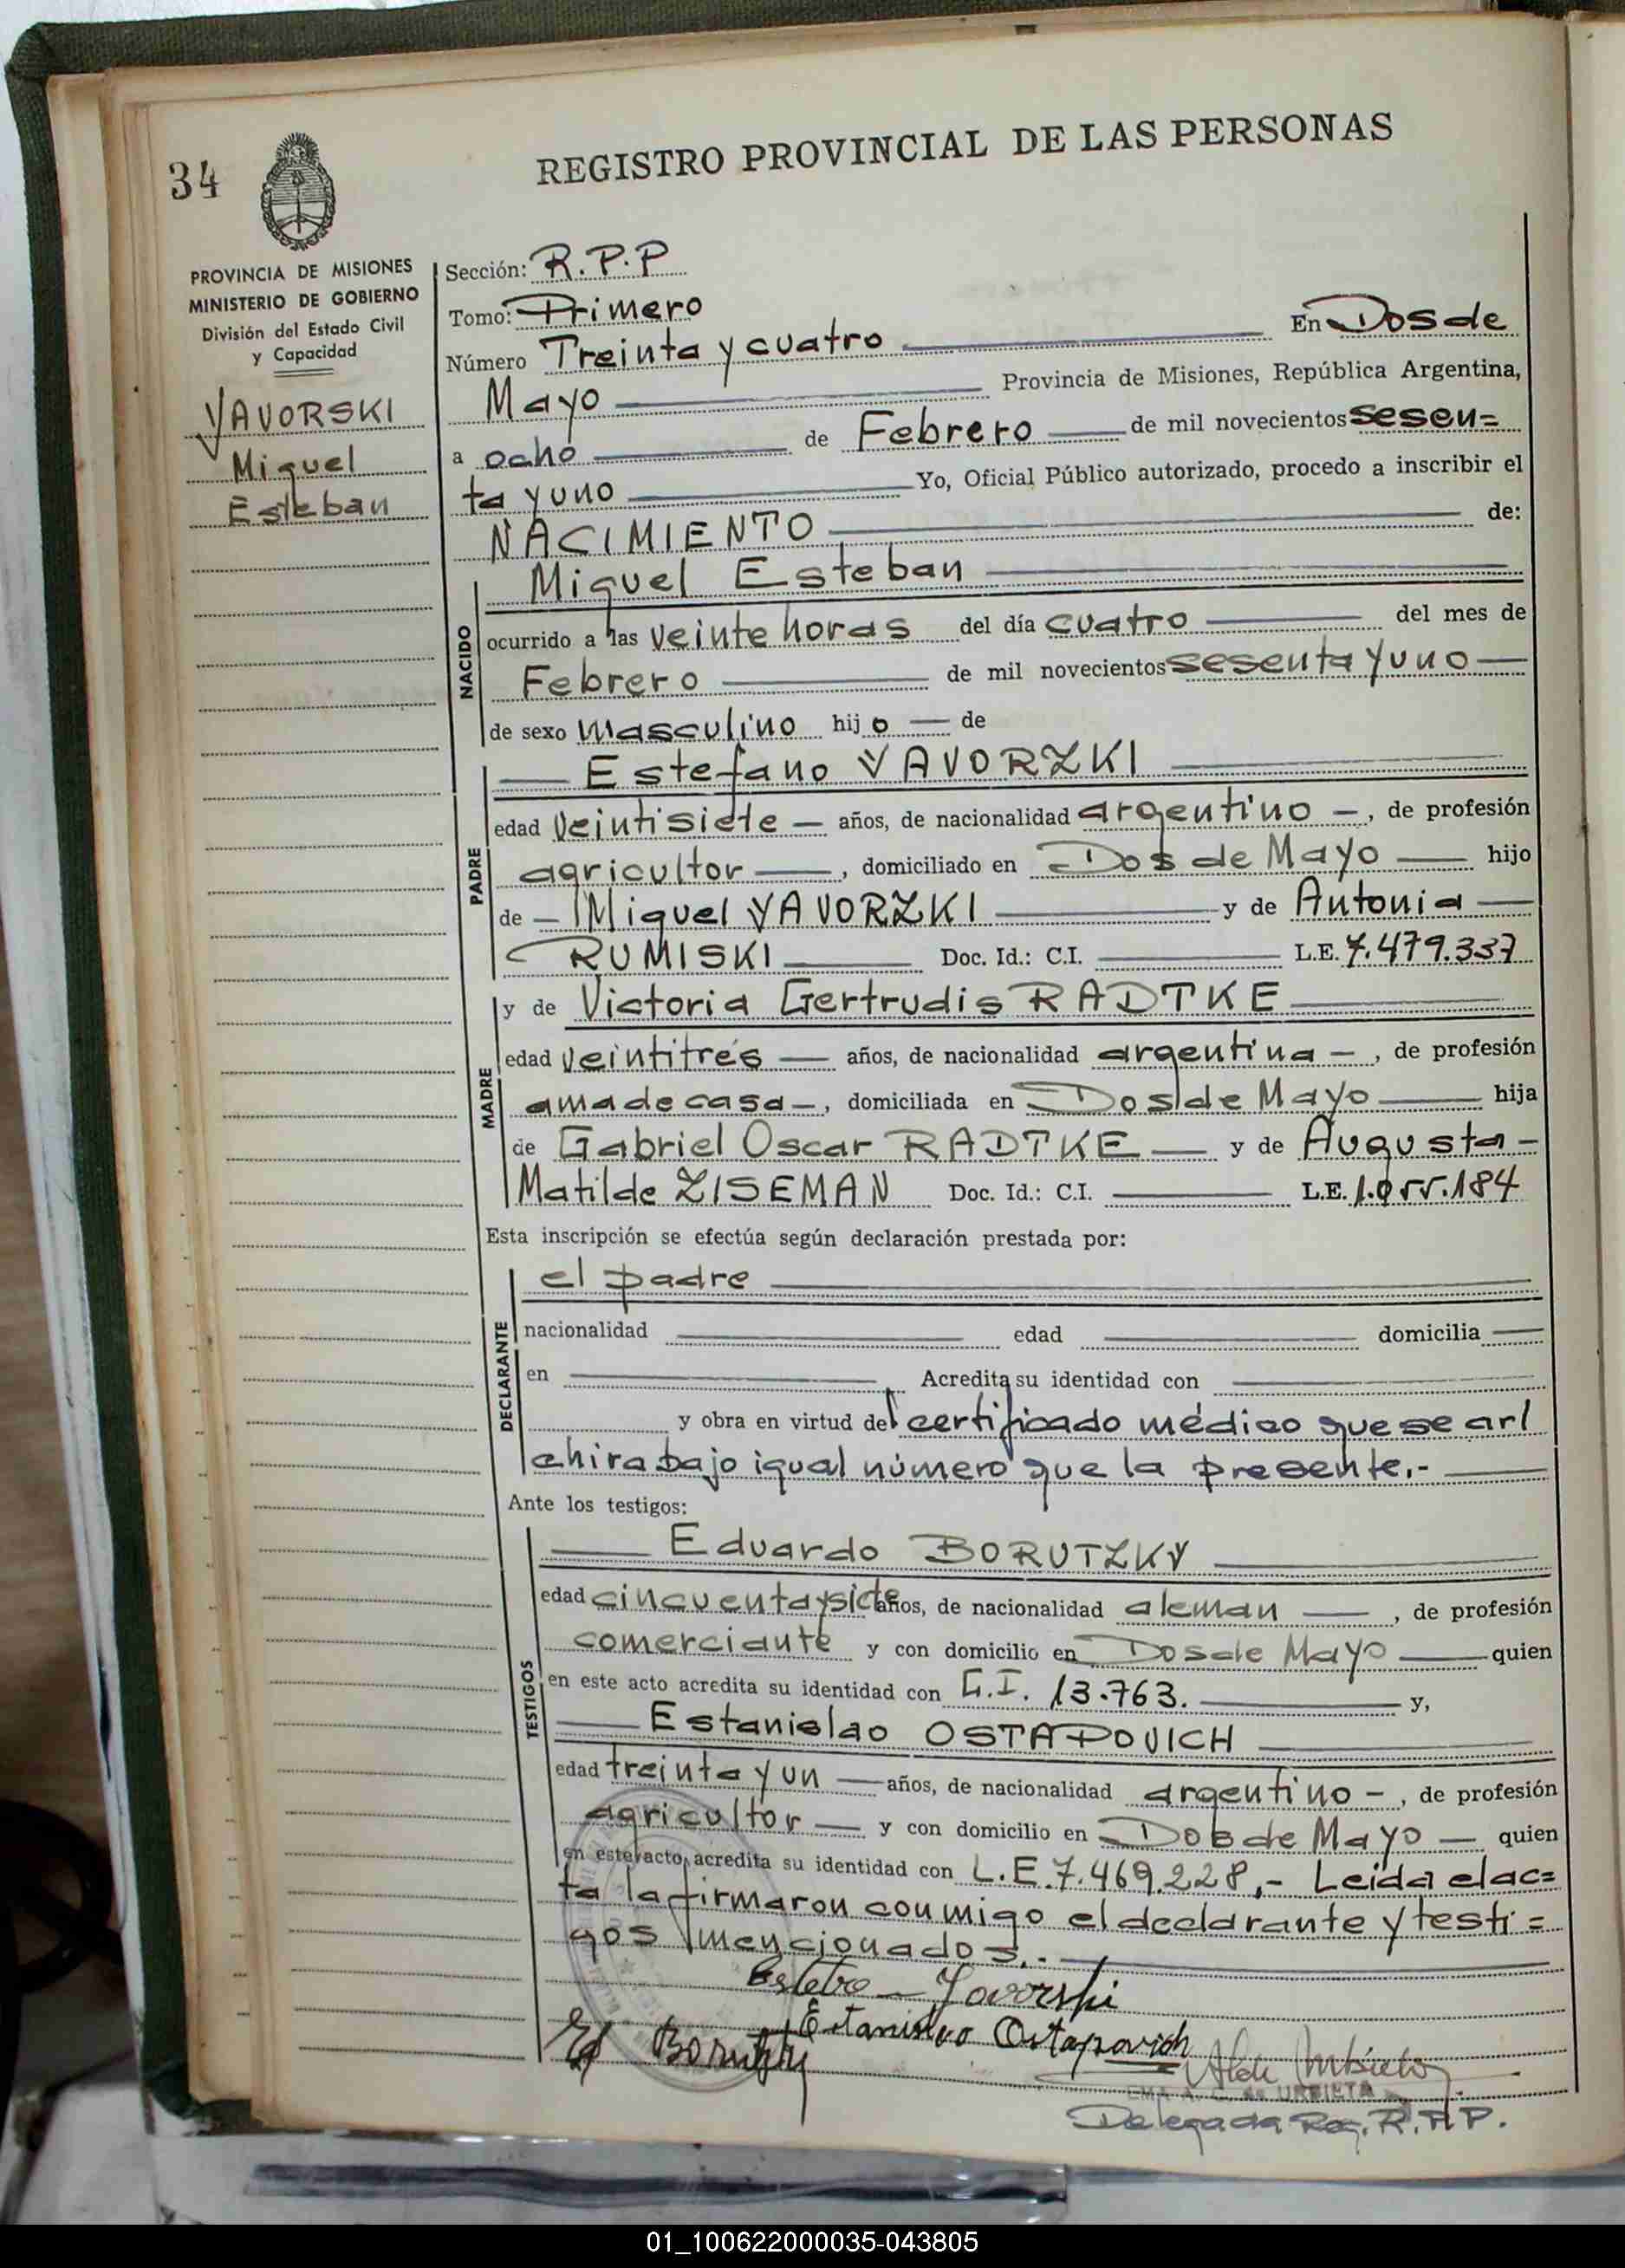 34
REGISTRO PROVINCIAL DE LAS PERSONAS
PROVINCIA DE MISIONES
MINISTERIO DE GOBIERNO
División del Estado Civil
y Capacidad
YAVORSKI
Miguel
Esteban
Sección: R.P.P
Tomo: Primero
Número Treinta y cuatro En Dos de
Mayo Provincia de Misiones, República Argentina,
a ocho de Febrero de mil novecientos sesen=
ta y uno Yo, Oficial Público autorizado, procedo a inscribir el
NACIMIENTO de:
NACIDO
Miguel Esteban
ocurrido a las veinte horas del día cuatro del mes de
Febrero de mil novecientos sesenta y uno
de sexo masculino hijo de
PADRE
Estefano YAVORZKI
edad veintisiete años, de nacionalidad argentino, de profesión
agricultor, domiciliado en Dos de Mayo hijo
de Miguel YAVORZKI y de Antonia
RUMISKI Doc. Id.: C.I. L.E. 7.479.337
MADRE
y de Victoria Gertrudis RADTKE
edad veintitrés años, de nacionalidad argentina, de profesión
ama de casa, domiciliada en Dos de Mayo hija
de Gabriel Oscar RADTKE y de Augusta
Matilde ZISEMAN Doc. Id.: C.I. L.E. 1.055.184
Esta inscripción se efectúa según declaración prestada por:
DECLARANTE
el padre
nacionalidad edad domicilia
en Acredita su identidad con
y obra en virtud del certificado médico que se ar
chira bajo igual número que la presente.-
Ante los testigos:
TESTIGOS
Eduardo BORUTZKY
edad cincuenta y siete años, de nacionalidad aleman, de profesión
comerciante y con domicilio en Dos de Mayo quien
en este acto acredita su identidad con C.I. 13.763. y,
Estanislao OSTAPOVICH
edad treinta y un años, de nacionalidad argentino, de profesión
agricultor y con domicilio en Dos de Mayo quien
en este acto acredita su identidad con L.E. 7.469.228,- Leída el ac=
ta la firmaron conmigo el declarante y testi=
gos mencionados.-
Estanislao Ostapovich
Ed Borutzky
URBIETA
Delegada Reg. R.P.P.
01_100622000035-043805